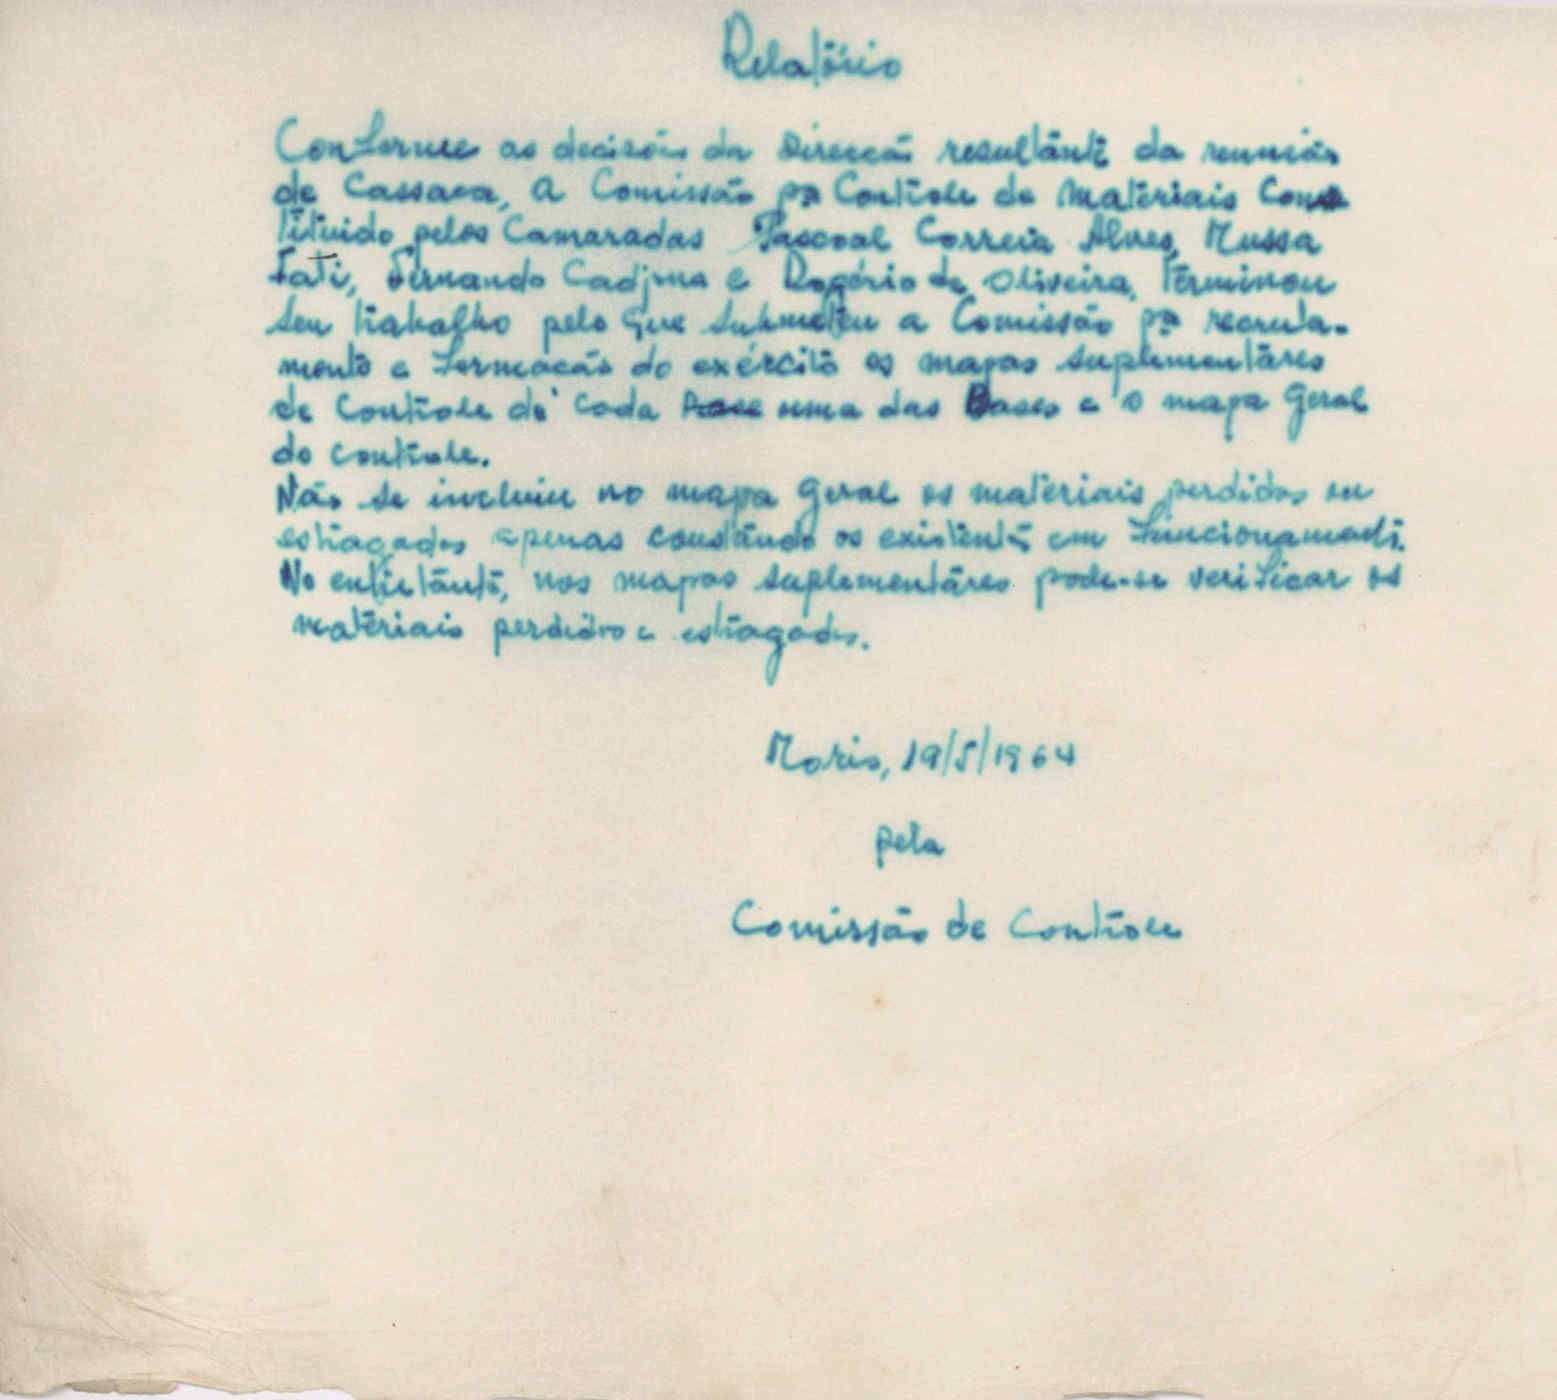 Relatório
Conforme as decisões da Direcção resultante da reunião
de Cassaca, a Comissão pª Contrôle de materiais Cons
tituido pelos Camaradas Pascoal Correia Alves, Mussa
Fati, Fernando Cadjma e Rogério de Oliveira, terminou
seu trabalho pelo que submeteu a Comissão pª recruta-
mento e formação do exército os mapas suplementares
de Contrôle de cada Base uma das Bases e o mapa Geral
do contrôle.
Não se incluiu no mapa Geral os materiais perdidos ou
estragados apenas constando os existentes em funcionamento.
No entretanto, nos mapas suplementares pode-se verificar os
materiais perdidos e estragados.
Moris, 19/5/1964
pela
Comissão de Contrôle